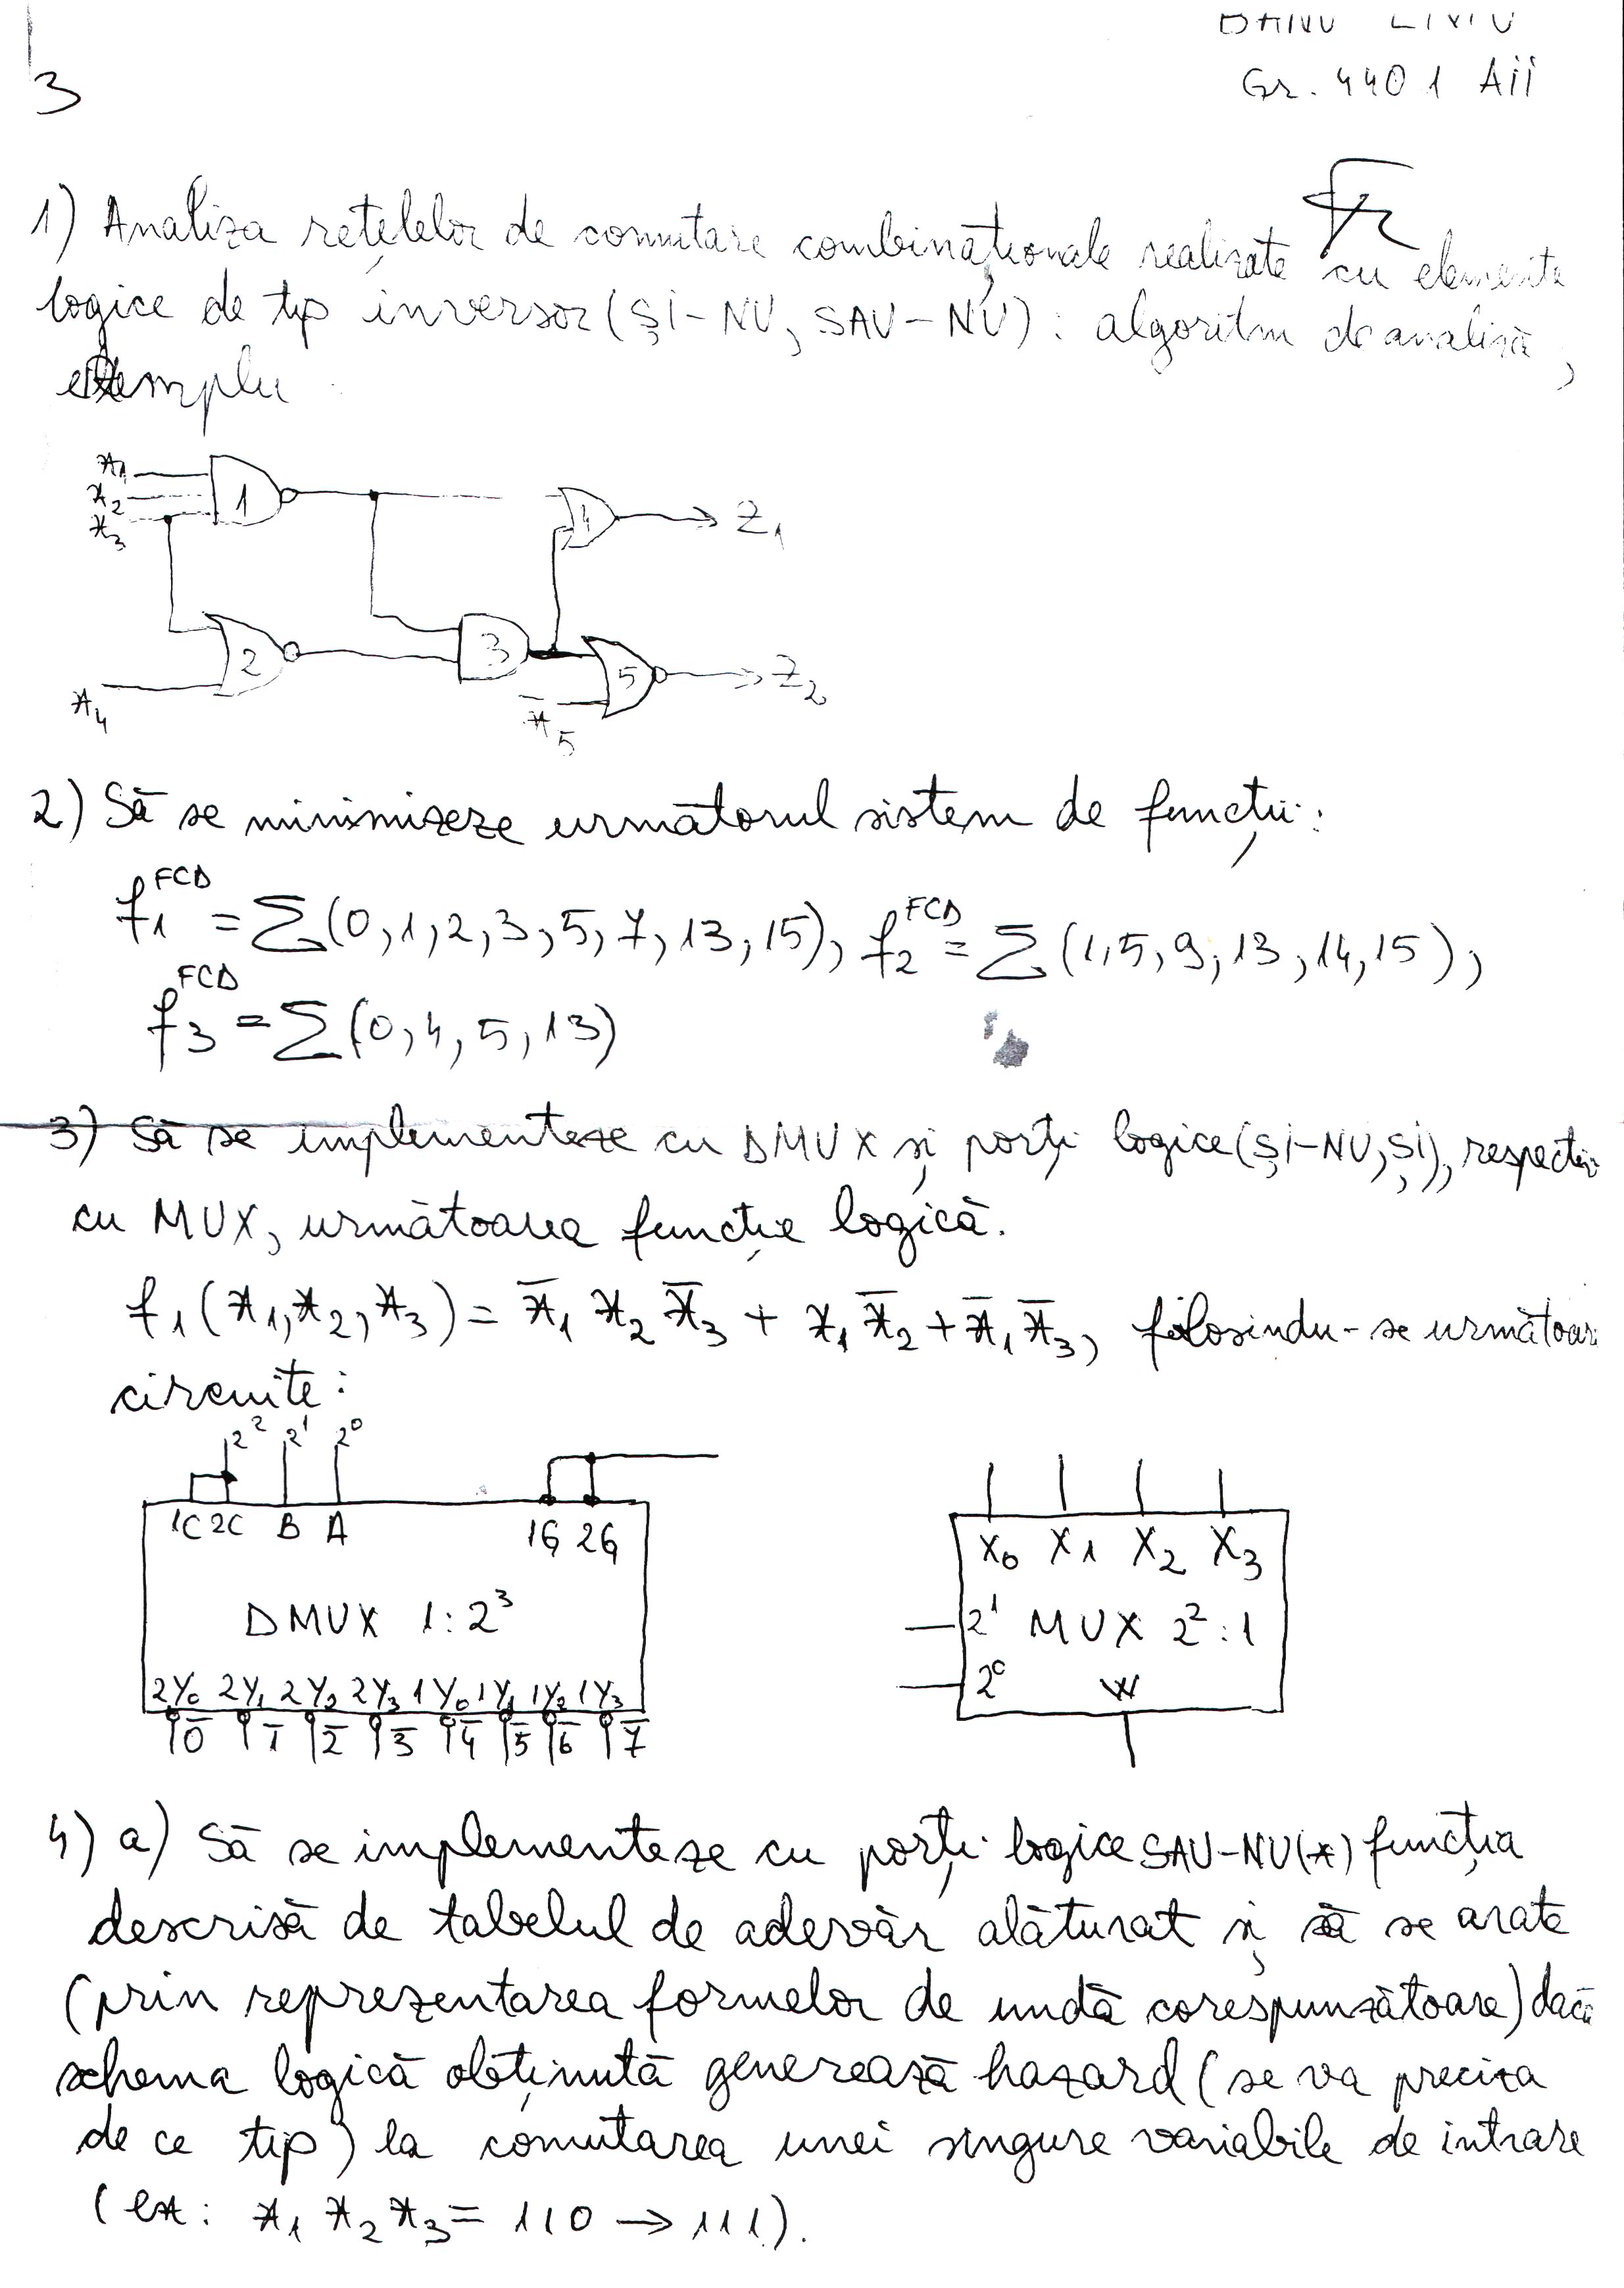 3
Gr. 4401 Aii
1) Analiza rețelelor de comutare combinaționale realizate cu elemente
logice de tip inversor (ȘI-NU, SAU-NU): algoritm de analiză,
exemplu
x1
x2
x3
1
4
Z1
2
3
5
Z2
x4
x̅5
2) Să se minimizeze următorul sistem de funcții:
f1^FCD = Σ(0,1,2,3,5,7,13,15), f2^FCD = Σ(1,5,9,13,14,15),
f3^FCD = Σ(0,4,5,13)
3) Să se implementeze cu DMUX și porți logice (ȘI-NU, ȘI), respectiv
cu MUX, următoarea funcție logică.
f1(x1,x2,x3) = x̅1 x2 x̅3 + x1 x̅2 + x̅1 x̅3, folosindu-se următoar
circuite:
2² 2¹ 2⁰
1C 2C B A 1G 2G
X0 X1 X2 X3
DMUX 1:2³
2¹ MUX 2²:1
2⁰ W
2Y0 2Y1 2Y2 2Y3 1Y0 1Y1 1Y2 1Y3
0̅ 1̅ 2̅ 3̅ 4̅ 5̅ 6̅ 7̅
4) a) Să se implementeze cu porți logice SAU-NU(*) funcția
descrisă de tabelul de adevăr alăturat și să se arate
(prin reprezentarea formelor de undă corespunzătoare) dacă
schema logică obținută generează hazard (se va preciza
de ce tip) la comutarea unei singure variabile de intrare
(ex: x1 x2 x3 = 110 → 111).